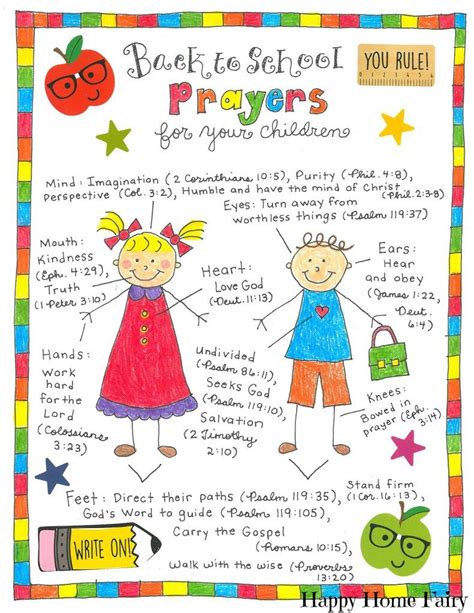 Back to School
YOU RULE!
Prayers
for your children
Mind: Imagination (2 Corinthians 10:5), Purity (Phil. 4:8),
perspective (Col. 3:2), Humble and have the mind of Christ
(Phil. 2:3-8)
Eyes: Turn away from
worthless things (Psalm 119:37)
Mouth:
Kindness
(Eph. 4:29),
Truth
(1 Peter 3:10)
Heart:
Love God
(Deut. 11:13)
Ears:
Hear
and obey
(James 1:22,
Deut.
6:4)
Hands:
Work
hard
for the
Lord
(Colossians
3:23)
Undivided
(Psalm 86:11)
Seeks God
(Psalm 119:10)
Salvation
(2 Timothy
2:10)
Knees:
Bowed in
prayer (Eph.
3:14)
Feet: Direct their paths (Psalm 119:35),
God's Word to guide (Psalm 119:105),
Stand firm
(1 Cor. 16:13),
Carry the Gospel
(Romans 10:15),
Walk with the wise (Proverbs
13:20)
WRITE ON!
Happy Home Fairy